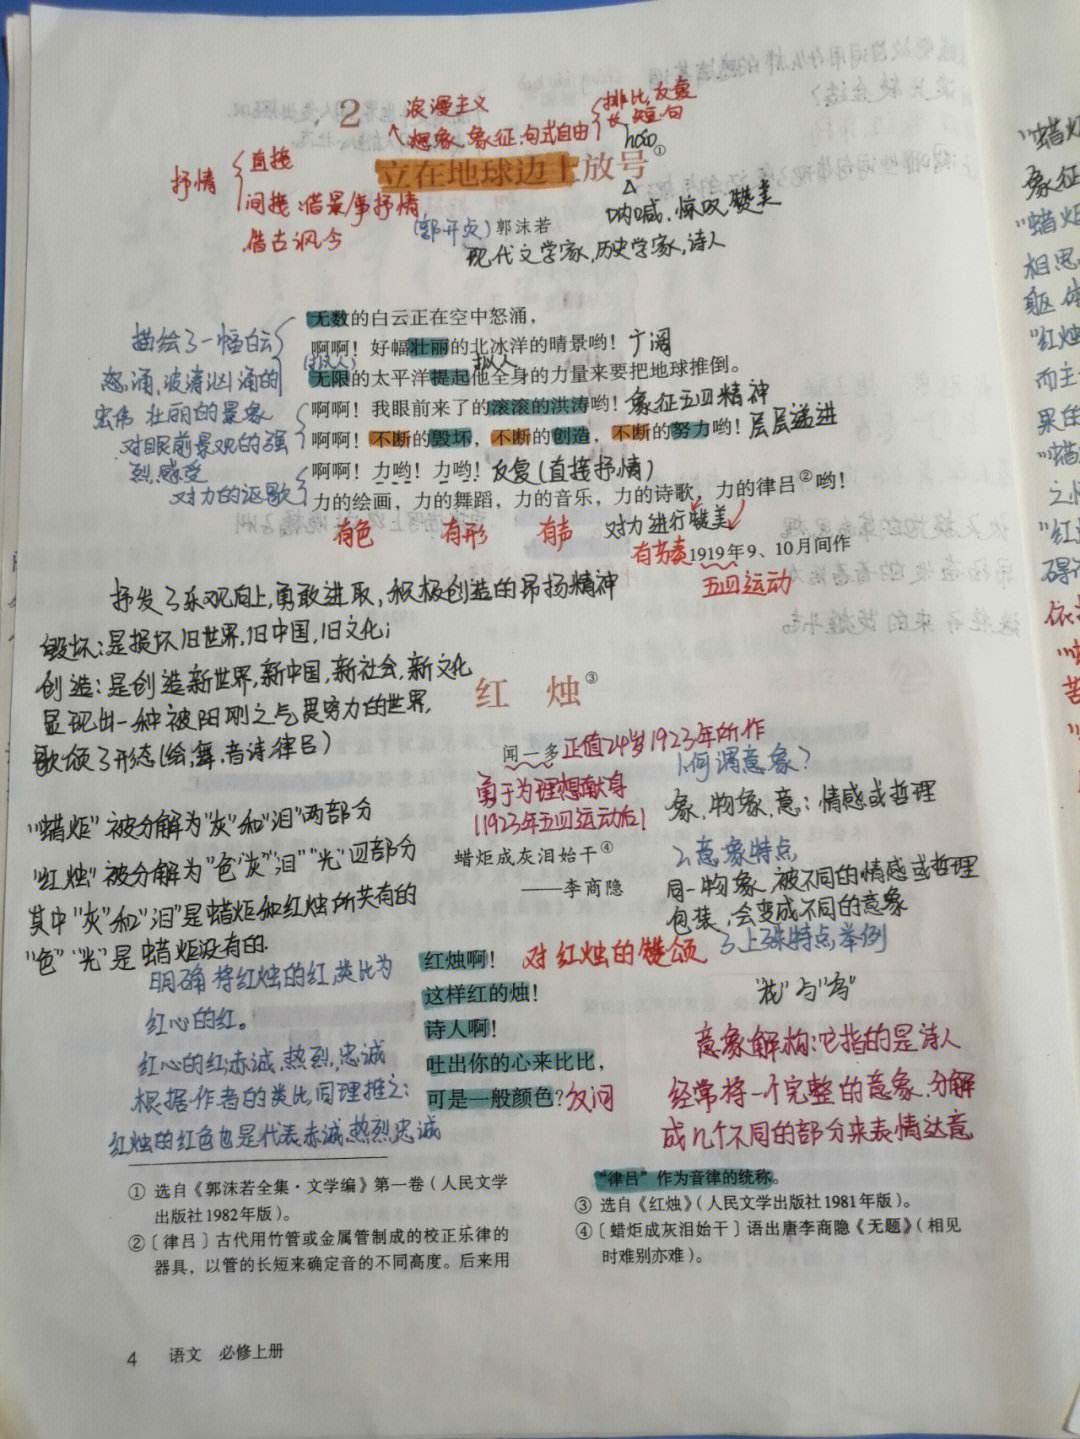 2
浪漫主义
想象、象征,句式自由
排比,反复
长短句
hào
立在地球边上放号①
抒情
直接
间接:借景/事抒情
借古讽今
呐喊、惊叹,赞美
(郭开贞)郭沫若
现代文学家,历史学家,诗人
无数的白云正在空中怒涌,
啊啊!好幅壮丽的北冰洋的晴景哟!广阔
(拟人)
拟人
无限的太平洋提起他全身的力量来要把地球推倒。
啊啊!我眼前来了的滚滚的洪涛哟!象征五四精神
啊啊!不断的毁坏,不断的创造,不断的努力哟!层层递进
啊啊!力哟!力哟!反复(直接抒情)
力的绘画,力的舞蹈,力的音乐,力的诗歌,力的律吕②哟!
描绘了一幅白云
怒涌,波涛汹涌的
宏伟壮丽的景象
对眼前景观的强
烈感受
对力的讴歌
有色
有形
有声
对力进行赞美
有节奏
1919年9、10月间作
五四运动
抒发了乐观向上,勇敢进取,积极创造的昂扬精神
毁坏:是损坏旧世界,旧中国,旧文化;
创造:是创造新世界,新中国,新社会,新文化
显现出一种被阳刚之气
力的世界,
歌颂了形态(绘,舞,音诗律吕)
红烛③
闻一多正值24岁1923年所作
勇于为理想献身
(1923年五四运动后)
蜡炬成灰泪始干④
——李商隐
1.何谓意象?
象,物象,意:情感或哲理
2.意象特点
同一物象,被不同的情感或哲理
包装,会变成不同的意象
3.上殊特点举例
"我"与"鸟"
意象解构:它指的是诗人
经常将一个完整的意象,分解
成几个不同的部分来表情达意
"蜡炬"被分解为"灰"和"泪"两部分
"红烛"被分解为"色""灰""泪""光"四部分
其中"灰"和"泪"是蜡炬和红烛所共有的
"色""光"是蜡炬没有的.
明确将红烛的红,类比为
红心的红。
红心的红:赤诚,热烈,忠诚
根据作者的类比同理推之:
红烛的红色也是代表赤诚,热烈忠诚
红烛啊!对红烛的赞颂
这样红的烛!
诗人啊!
吐出你的心来比比,
可是一般颜色?反问
① 选自《郭沫若全集·文学编》第一卷(人民文学
出版社1982年版)。
②〔律吕〕古代用竹管或金属管制成的校正乐律的
器具,以管的长短来确定音的不同高度。后来用
“律吕”作为音律的统称。
③ 选自《红烛》(人民文学出版社1981年版)。
④〔蜡炬成灰泪始干〕语出唐李商隐《无题》(相见
时难别亦难)。
4 语文 必修上册
"蜡炬
象征
"蜡炬
相思
躯体
"红烛
而主
果的
"蜡
之情
"红
碍
依
苦